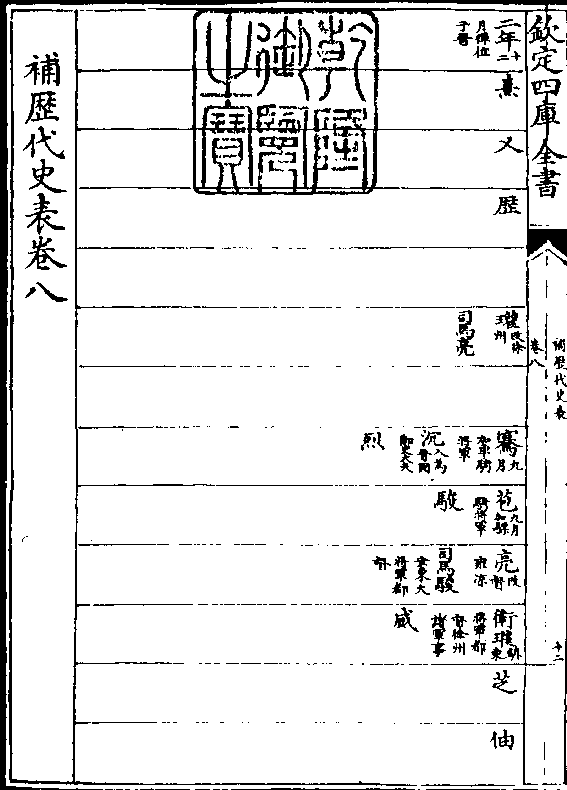 欽定四庫全書
補歷代史表
卷八
十二
二年十二月禪位于晉
熹
乂
歷
瓘改徐州
司馬亮
騫九月加車騎將軍
沉入為晉國御史大夫
烈
苞九月加驃騎將軍
駿
亮改督雍涼
司馬駿安東大將軍都督
衛瓘鎮東將軍都督徐州諸軍事
威
芝
伷
乾隆御覽之寶
補歷代史表卷八